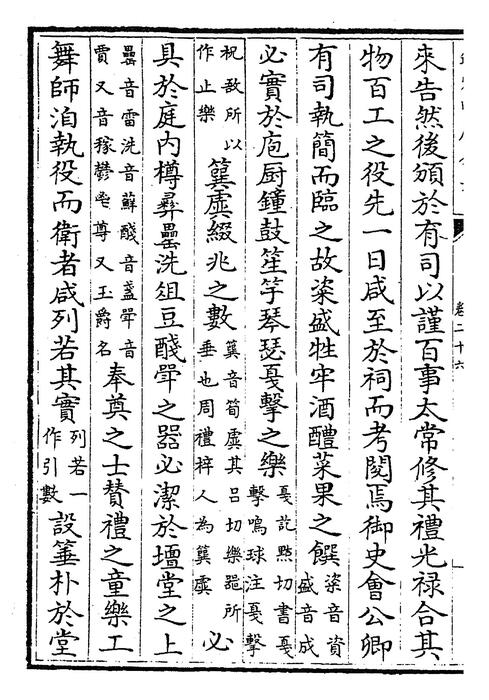 來告然後頒於有司以謹百事太常修其禮光禄合其
物百工之役先一日咸至於祠而考閱焉御史會公卿
有司執簡而臨之故粢盛牲牢酒醴菜果之饌粢音資盛音成
必實於庖厨鐘鼓笙竽琴瑟戛擊之樂戛訖黠切書戛擊鳴球注戛擊
柷敔所以作止樂簨虡綴兆之數簨音筍虡其呂切樂噐所垂也周禮梓人為簨虡必
具於庭内樽彞罍洗俎豆醆斝之器必潔於壇堂之上
罍音雷洗音蘇醆音盞斝音賈又音稼鬱鬯尊又玉爵名奉奠之士賛禮之童樂工
舞師洎執役而衛者咸列若其實列若一作引數設箠朴於堂
卷二十六